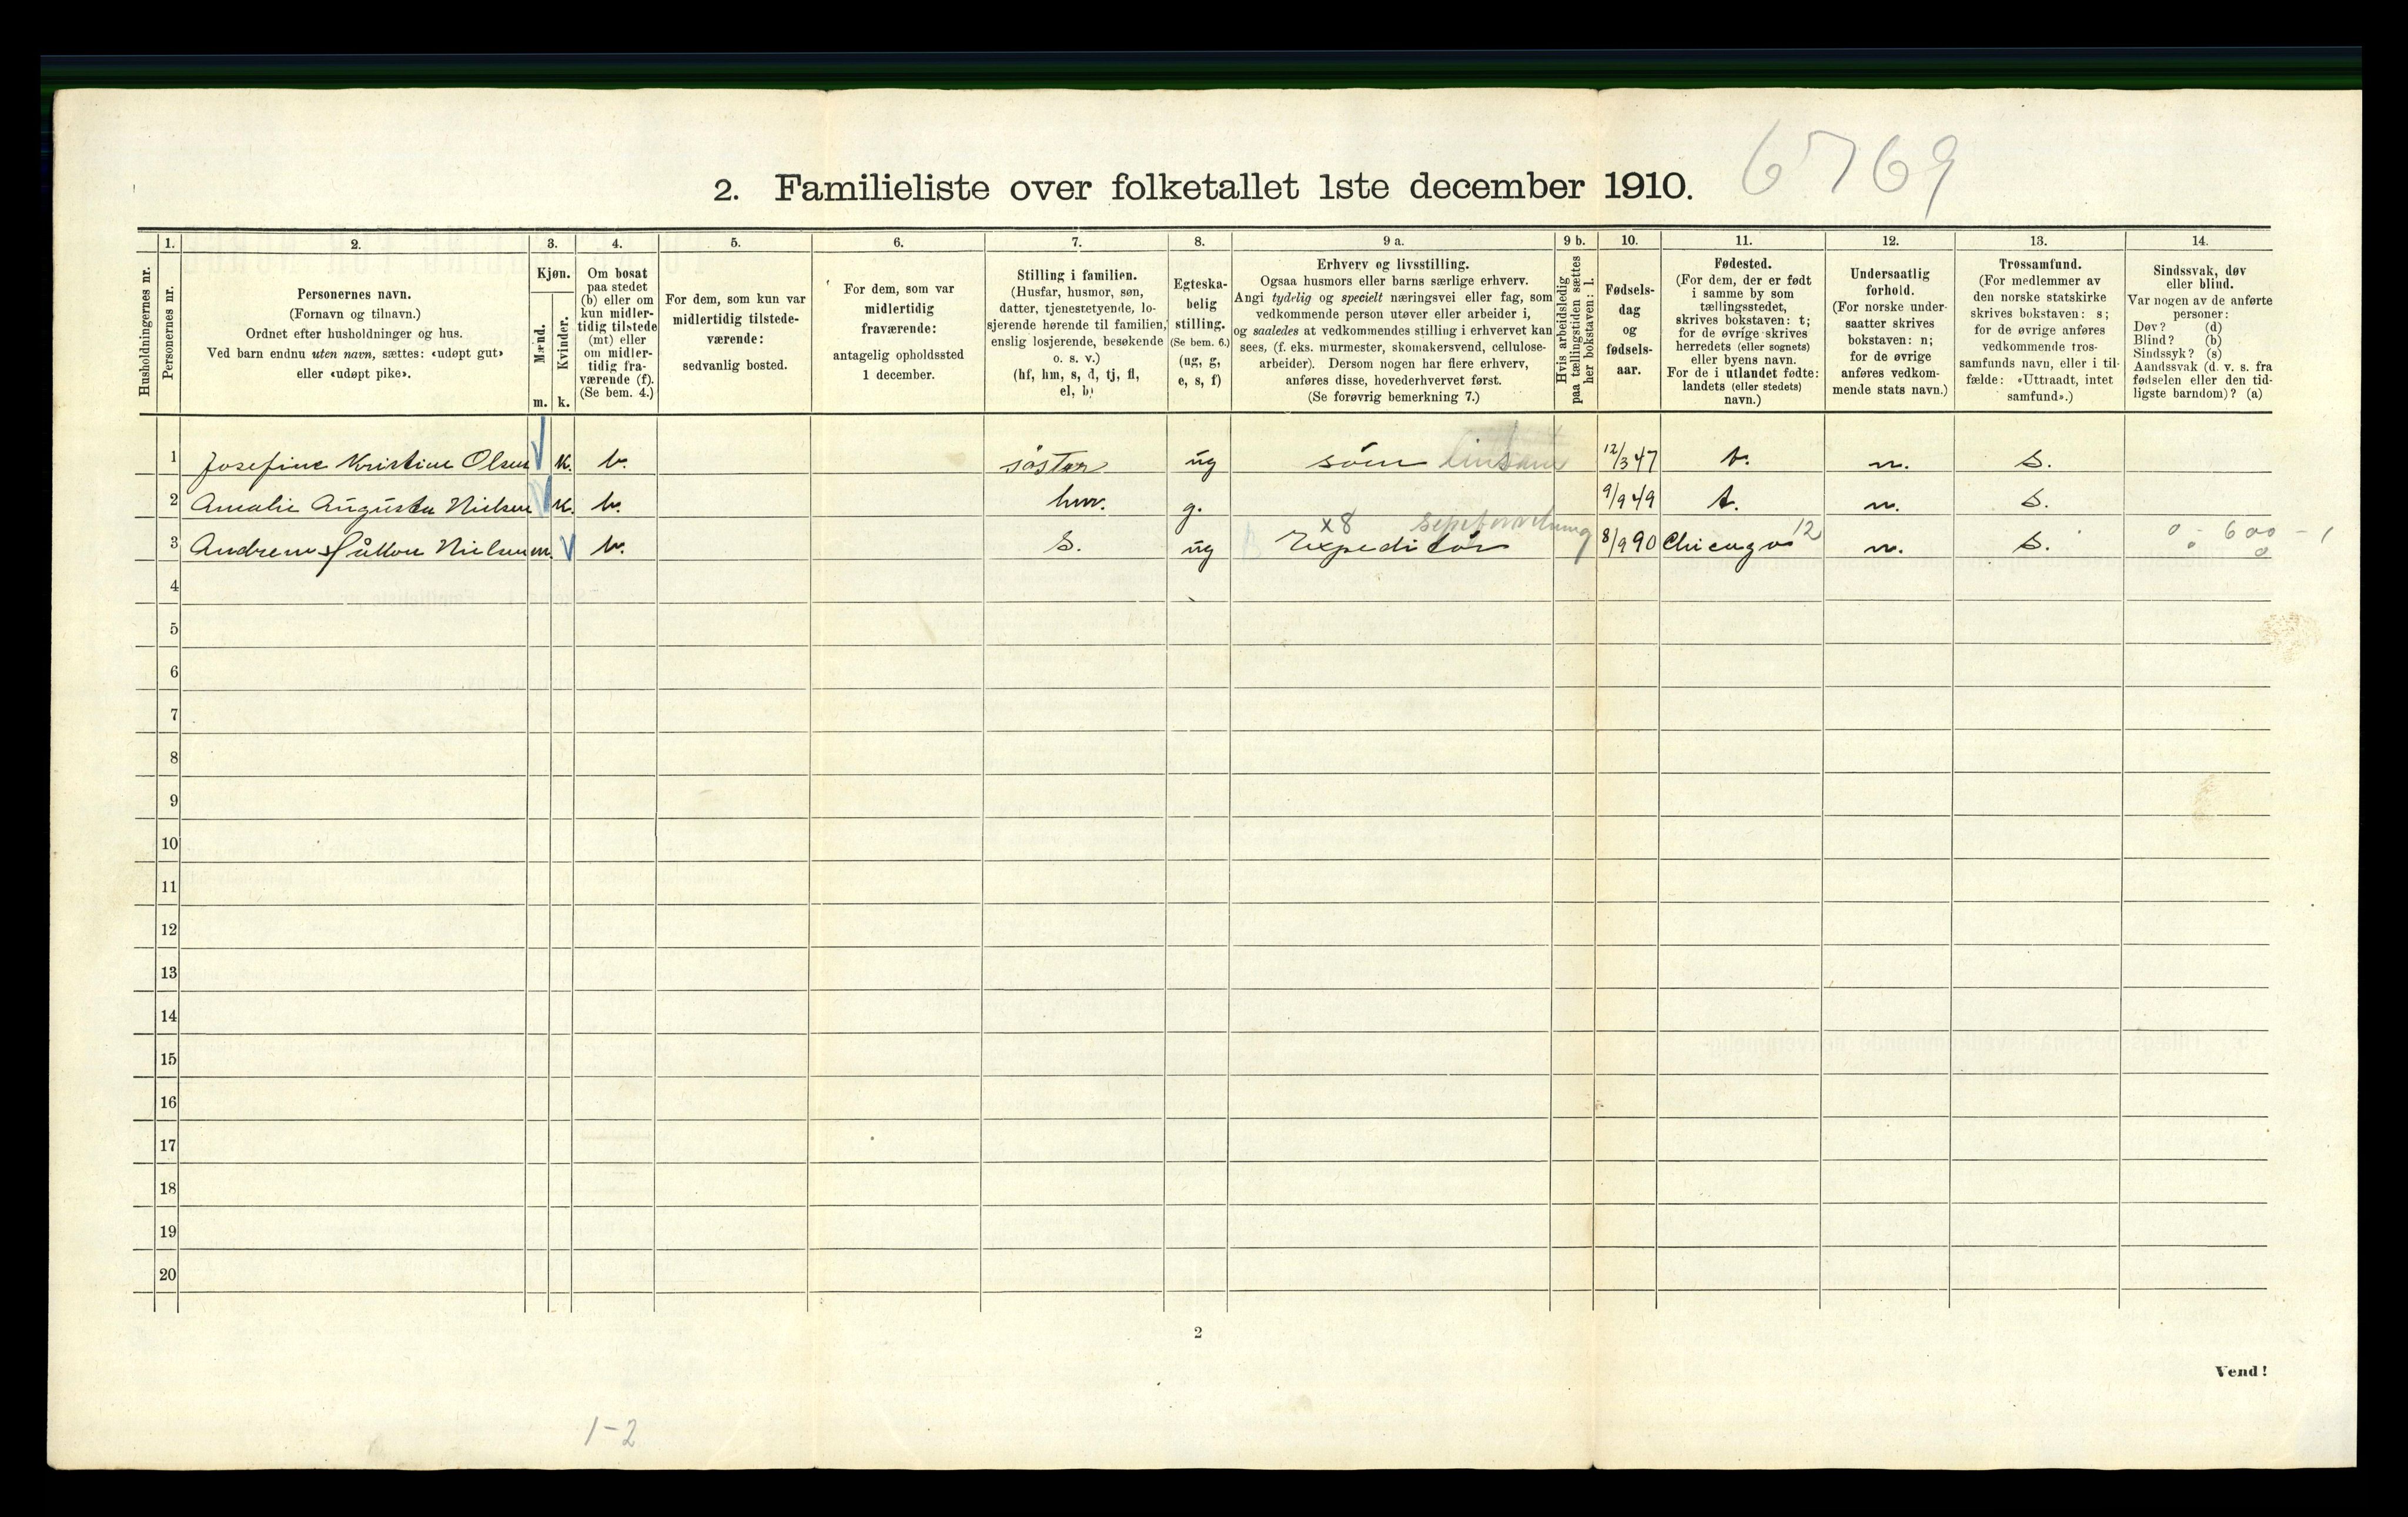 6769
2. Familieliste over folketallet 1ste december 1910.
Husholdningernes nr.
1.
Personernes nr.
2.
Personernes navn.
(Fornavn og tilnavn.)
Ordnet efter husholdninger og hus.
Ved barn endnu uten navn, sættes: «udøpt gut»
eller «udøpt pike».
3.
Kjøn.
Mænd.
Kvinder.
m. k.
4.
Om bosat
paa stedet
(b) eller om
kun midler-
tidig tilstede
(mt) eller
om midler-
tidig fra-
værende (f).
(Se bem. 4.)
5.
For dem, som kun var
midlertidig tilstede-
værende:
sedvanlig bosted.
6.
For dem, som var
midlertidig
fraværende:
antagelig opholdssted
1 december.
7.
Stilling i familien.
(Husfar, husmor, søn,
datter, tjenestetyende, lo-
sjerende hørende til familien,
enslig losjerende, besøkende
o. s. v.)
(hf, hm, s, d, tj, fl,
el, b)
8.
Egteska-
belig
stilling.
(Se bem. 6.)
(ug, g,
e, s, f)
9 a.
Erhverv og livsstilling.
Ogsaa husmors eller barns særlige erhverv.
Angi tydelig og specielt næringsvei eller fag, som
vedkommende person utøver eller arbeider i,
og saaledes at vedkommendes stilling i erhvervet kan
sees, (f. eks. murmester, skomakersvend, cellulose-
arbeider). Dersom nogen har flere erhverv,
anføres disse, hovederhvervet først.
(Se forøvrig bemerkning 7.)
9 b.
Hvis arbeidsledig
paa tællingstiden sættes
her bokstaven: l.
10.
Fødsels-
dag
og
fødsels-
aar.
11.
Fødested.
(For dem, der er født
i samme by som
tællingsstedet,
skrives bokstaven: t;
for de øvrige skrives
herredets (eller sognets)
eller byens navn.
For de i utlandet fødte:
landets (eller stedets)
navn.)
12.
Undersaatlig
forhold.
(For norske under-
saatter skrives
bokstaven: n;
for de øvrige
anføres vedkom-
mende stats navn.)
13.
Trossamfund.
(For medlemmer av
den norske statskirke
skrives bokstaven: s;
for de øvrige anføres
vedkommende tros-
samfunds navn, eller i til-
fælde: «Uttraadt, intet
samfund».)
14.
Sindssvak, døv
eller blind.
Var nogen av de anførte
personer:
Døv? (d)
Blind? (b)
Sindssyk? (s)
Aandssvak (d. v. s. fra
fødselen eller den tid-
ligste barndom)? (a)
1 Josefine Kristine Olsen k. b. søster ug søm 12/3 47 t. n. s.
2 Amalie Augusta Nielsen k. b. hm. g. 9/9 49 t. n. s.
x8
3 Andrew Nielsen m. b. s. ug Expeditør 8/9 90 Chicago 12 n. s. 0 - 600 - 1
4
5
6
7
8
9
10
11
12
13
14
15
16
17
18
19
20
2
Vend!
1-2